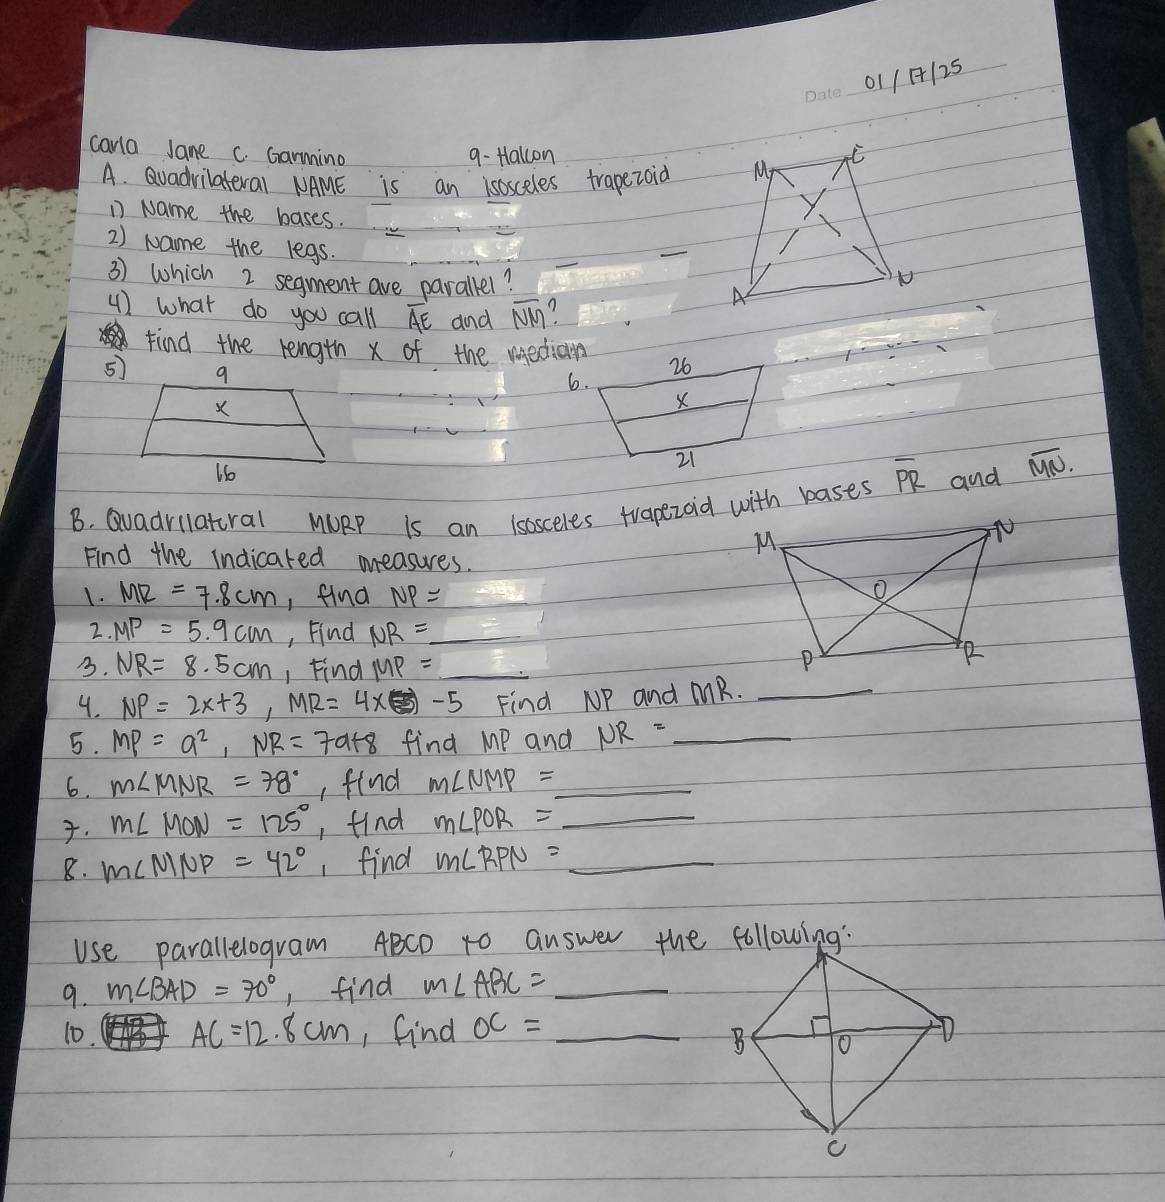 Date 01/17/25
Carla Jane C. Garmino 9-Halcon
A. Quadrilateral NAME is an isosceles trapezoid
1) Name the bases.
2) Name the legs.
3) Which 2 segment are parallel?
4) What do you call AE and NM?
Find the length x of the median
5) 9
x
16
6. 26
x
21
M E
A N
B. Quadrilateral MNRP is an isosceles trapezoid with bases PR and MN.
Find the indicated measures.
1. MR = 7.8cm, find NP =
2. MP = 5.9cm, Find NR =
3. NR = 8.5cm, Find MP =
4. NP = 2x+3, MR = 4x -5 Find NP and MR.
5. MP = a², NR = 7a+8 find MP and NR =
6. m∠MNR = 78°, find m∠NMP =
7. m∠MON = 125°, find m∠POR =
8. m∠MNP = 42°, find m∠RPN =
M N
O
P R
Use parallelogram ABCD to answer the following:
9. m∠BAD = 70°, find m∠ABC =
10. AC = 12.8cm, find OC =
A
B O D
C